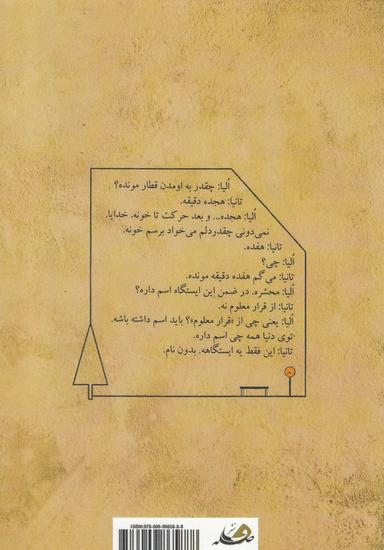 اُلیا: چقدر به اومدن قطار مونده؟
تانیا: هجده دقیقه.
اُلیا: هجده... و بعد حرکت تا خونه. خدایا.
نمی‌دونی چقدردلم می‌خواد برسم خونه.
تانیا: هفده.
اُلیا: چی؟
تانیا: می‌گم هفده دقیقه مونده.
اُلیا: محشره. در ضمن این ایستگاه اسم داره؟
تانیا: از قرار معلوم نه.
اُلیا: یعنی چی از «قرار معلوم»؟ باید اسم داشته باشه.
توی دنیا همه چی اسم داره.
تانیا: این فقط یه ایستگاهه. بدون نام.